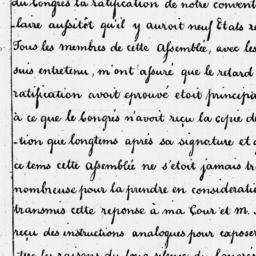 du Congrès la ratification de notre convent
-laire aussitôt qu'il y auroit neuf Etats re
Tous les membres de cette Assemblée, avec les
suis entretenu, m'ont assuré que le retard
ratification avoit eprouvé etoit principa
à ce que le Congrès n'avoit reçu la copie de
-tion que longtems après sa signature et q
ce tems cette Assemblée ne s'etoit jamais tr
nombreuse pour la prendre en considerati
transmis cette reponse à ma Cour et M.
reçu des instructions analogues pour exposer
les raisons du long silence du Congres